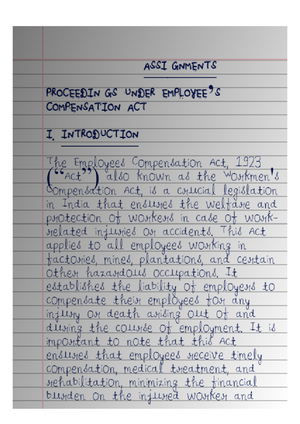 ASSI GNMENTS
PROCEEDIN GS UNDER EMPLOYEE'S
COMPENSATION ACT
I. INTRODUCTION
The Employees Compensation Act, 1923
("Act") also known as the Workmen's
Compensation Act, is a crucial legislation
in India that ensures the welfare and
protection of workers in case of work-
related injuries or accidents. This Act
applies to all employees working in
factories, mines, plantations, and certain
other hazardous occupations. It
establishes the liability of employers to
compensate their employees for any
injury or death arising out of and
during the course of employment. It is
important to note that this Act
ensures that employees receive timely
compensation, medical treatment, and
rehabilitation, minimizing the financial
burden on the injured worker and